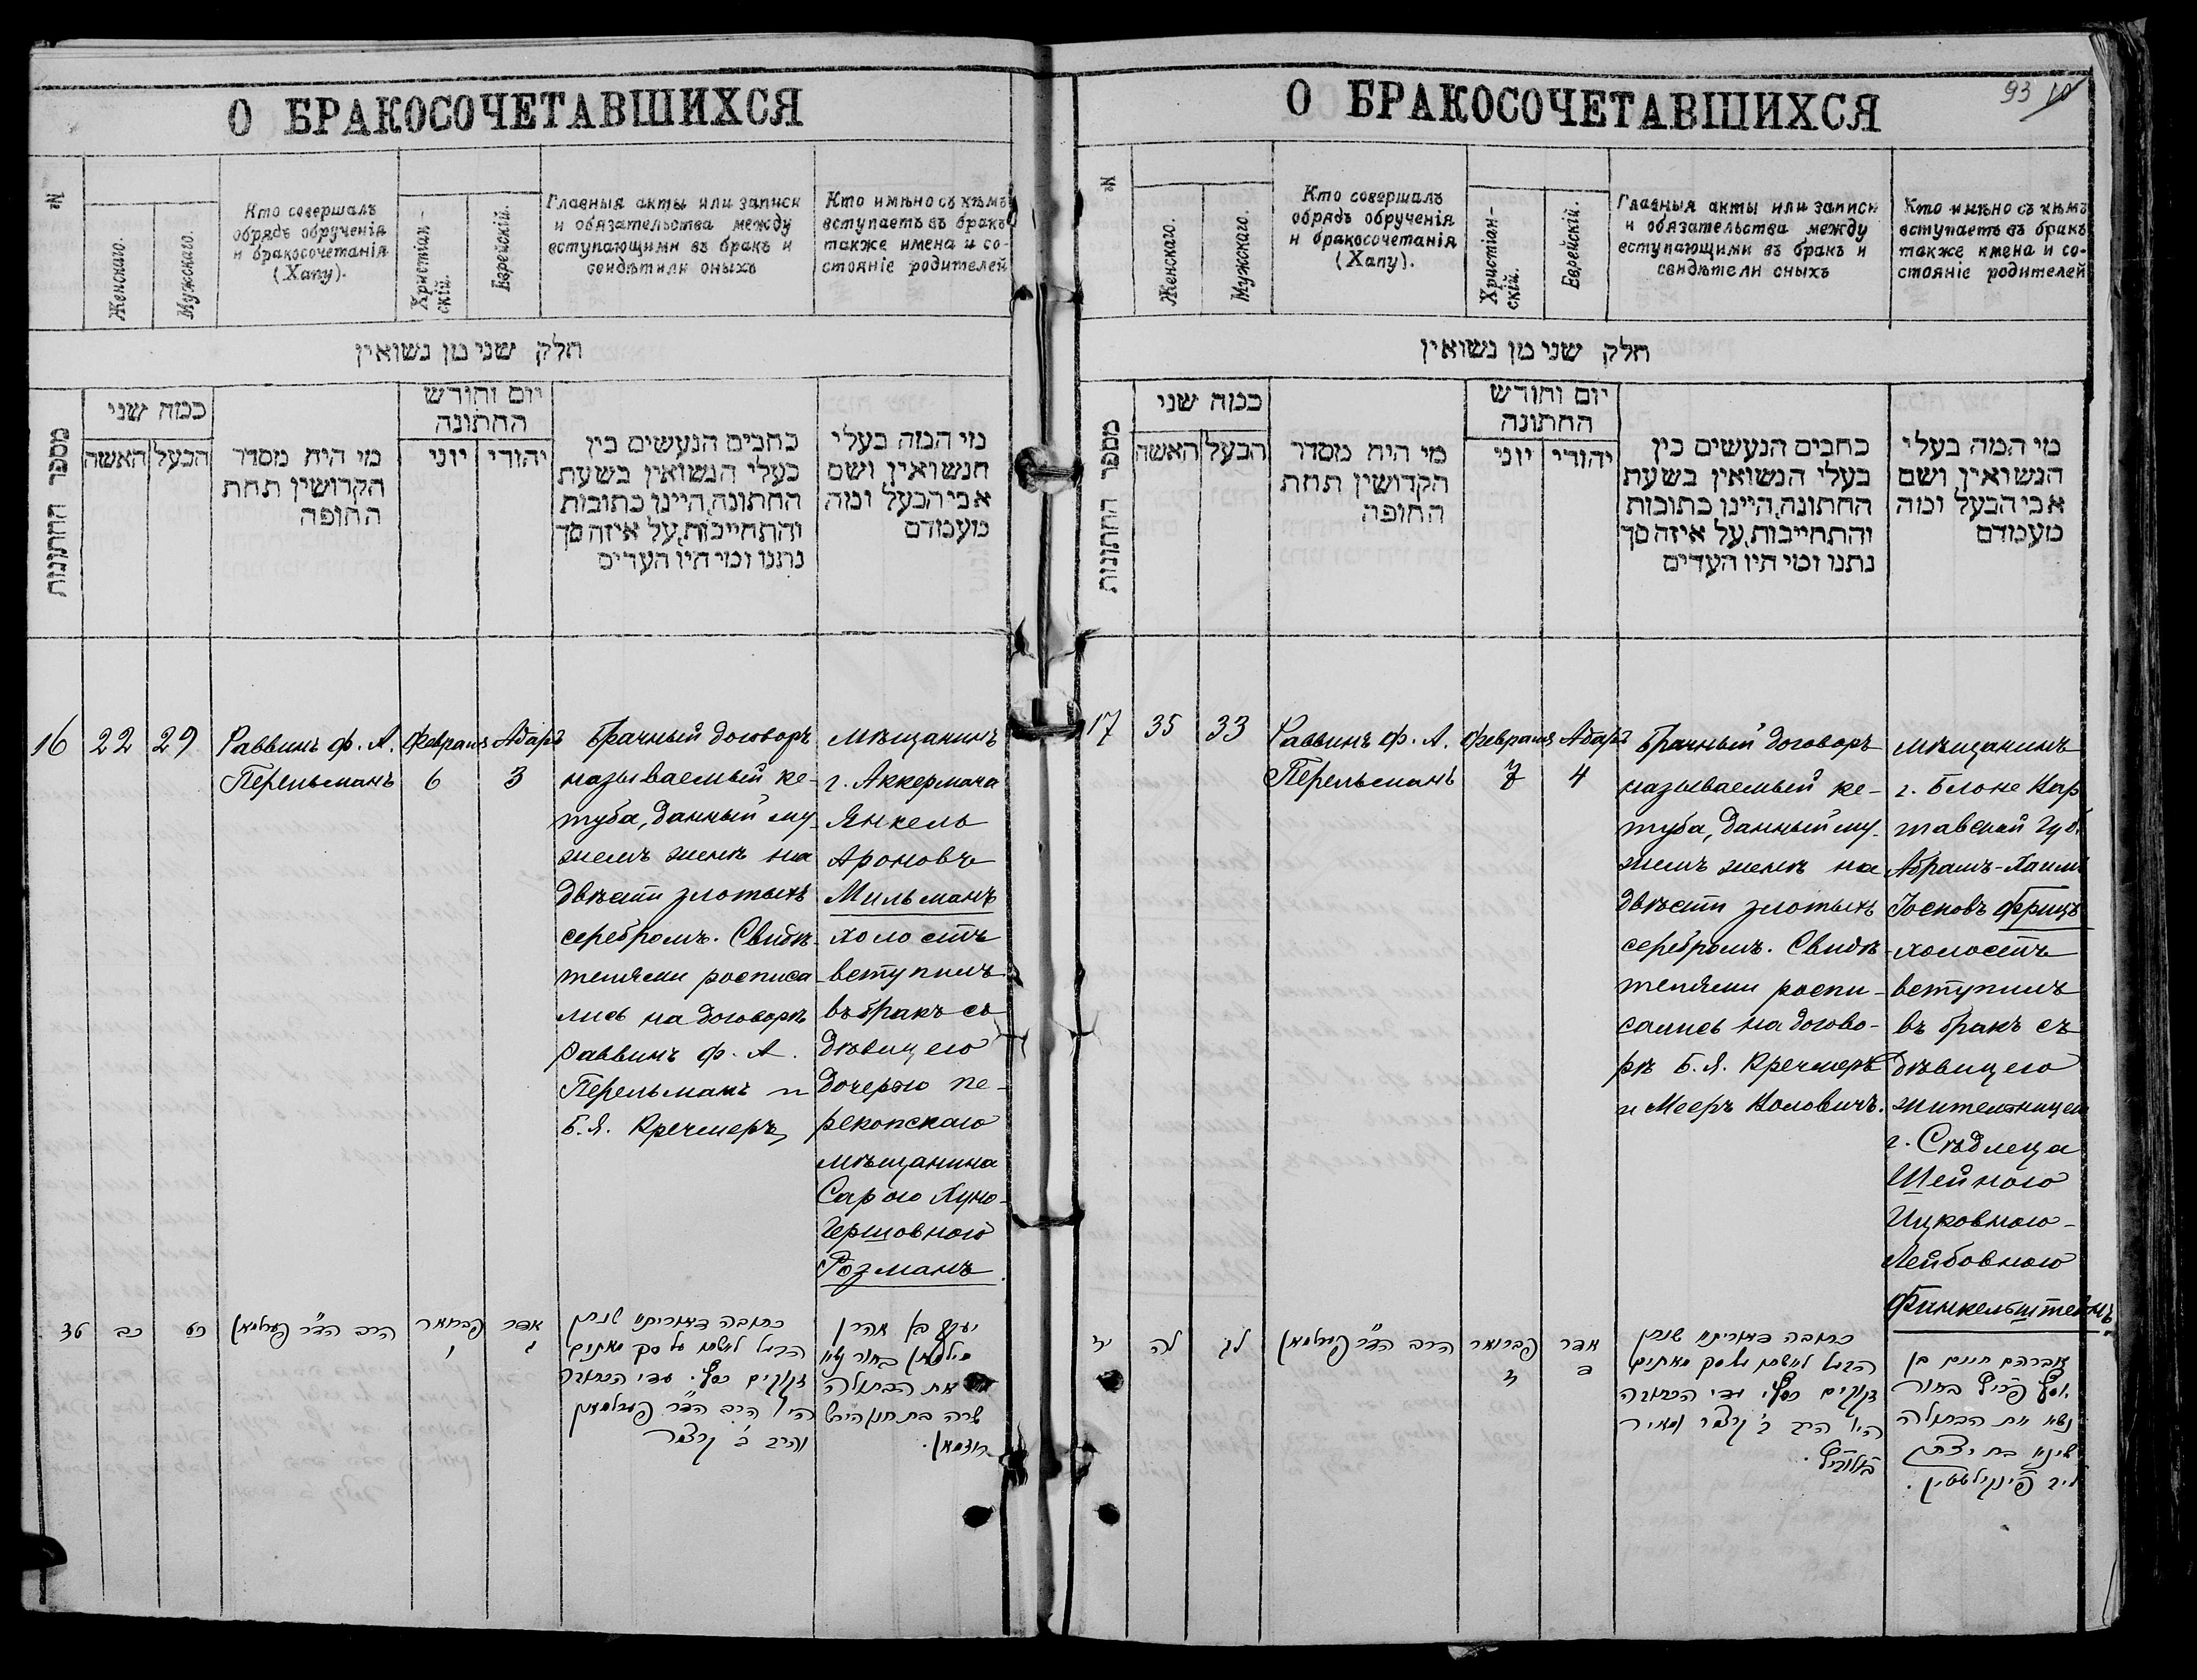 О БРАКОСОЧЕТАВШИХСЯ
№
Женскаго.
Мужскаго.
Кто совершалъ
обрядъ обрученія
и бракосочетанія
(Хапу).
Христіан-
скій.
Еврейскій.
Главныя акты или записи
и обязательства между
вступающими въ бракъ и
свидѣтели оныхъ
Кто имѣно съ кѣмъ
вступаетъ въ бракъ
также имена и со-
стояніе родителей
חלק שני מן נשואין
מספר החתונות
כמה שני
האשה
הבעל
מי היה מסדר
הקדושין תחת
החופה
יום וחודש
החתונה
יוני
יהודי
כתבים הנעשים בין
בעלי הנשואין בשעת
החתונה, היינו כתובות
והתחייבות, על איזה סך
נתנו ומי היו העדים
מי המה בעלי
הנשואין ושם
אבי הבעל ומה
מעמדם
16
22
29
Раввинъ Ф. А.
Перельманъ
Февраля
6
Адаръ
3
Брачный договоръ
называемый ке-
туба, данный му-
жемъ женѣ на
двѣсти злотыхъ
серебромъ. Свидѣ-
телями росписа-
лись на договорѣ
Раввинъ Ф. А.
Перельманъ и
Б. Я. Кречмеръ
Мѣщанинъ
г. Аккермана
Янкель
Ароновъ
Мильманъ
холостъ
вступилъ
въ бракъ съ
дѣвицею
дочерью пе-
рекопскаго
мѣщанина
Сарою Хуно-
Гершовною
Розманъ
כב
כט
הרב הד״ר פערלמאן
פברואר
ו
אדר
ג
כתובה דאוריתא שנתן
הבעל לאשתו על סך מאתים
זקוקים כסף. עדי הכתובה
היו הרב הד״ר פערלמאן
והרב ב׳ קרצמר
יעקב בן אהרן
מילמאן בחור נשא
את הבתולה
שרה בת חנא הירש
רוזמאן.
О БРАКОСОЧЕТАВШИХСЯ
93 10
№
Женскаго.
Мужскаго.
Кто совершалъ
обрядъ обрученія
и бракосочетанія
(Хапу).
Христіан-
скій.
Еврейскій.
Главныя акты или записи
и обязательства между
вступающими въ бракъ и
свидѣтели оныхъ
Кто имѣно съ кѣмъ
вступаетъ въ бракъ
также имена и со-
стояніе родителей
חלק שני מן נשואין
מספר החתונות
כמה שני
האשה
הבעל
מי היה מסדר
הקדושין תחת
החופה
יום וחודש
החתונה
יוני
יהודי
כתבים הנעשים בין
בעלי הנשואין בשעת
החתונה, היינו כתובות
והתחייבות, על איזה סך
נתנו ומי היו העדים
מי המה בעלי
הנשואין ושם
אבי הבעל ומה
מעמדם
17
35
33
Раввинъ Ф. А.
Перельманъ
Февраля
7
Адаръ
4
Брачный договоръ
называемый ке-
туба, данный му-
жемъ женѣ на
двѣсти злотыхъ
серебромъ. Свидѣ-
телями роспи-
сались на догово-
рѣ Б. Я. Кречмеръ
и Мееръ Воловичъ.
мѣщанинъ
г. Блоне Вар
шавской губ.
Абрамъ-Хаимъ
Іосновъ Фрицъ
холостъ
вступилъ
въ бракъ съ
дѣвицею
жительницею
г. Сѣдлеца
Шейною
Ицковною-
Лейбовною
Финкельштейнъ
יז
לה
לג
הרב הד״ר פערלמאן
פברואר
ז
אדר
ד
כתובה דאוריתא שנתן
הבעל לאשתו על סך מאתים
זקוקים כסף. עדי הכתובה
היו הרב ב׳ קרצמר ומאיר
אברהם חיים בן
יוסף פריץ בחור
נשא את הבתולה
שיינא בת יצחק
ליב פינקילשטיין.